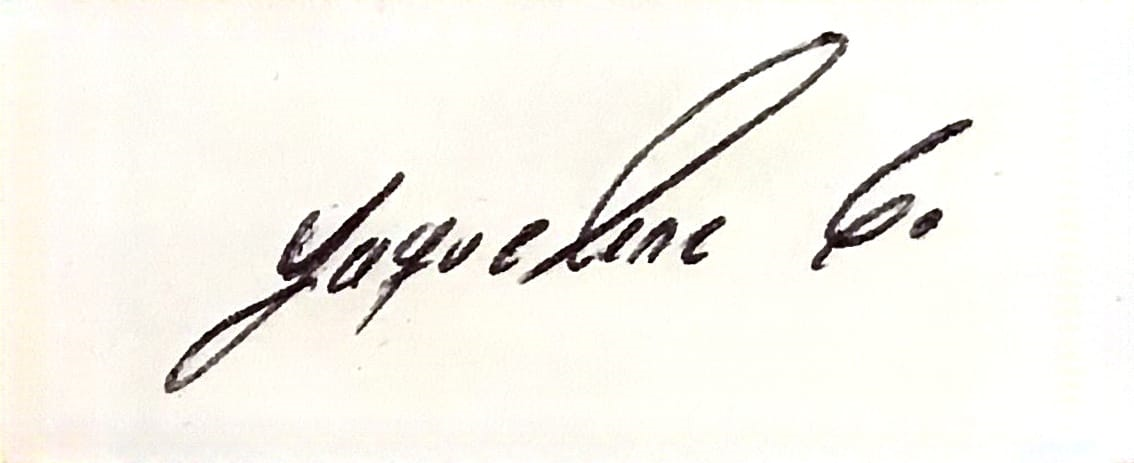 Yaqueline C.